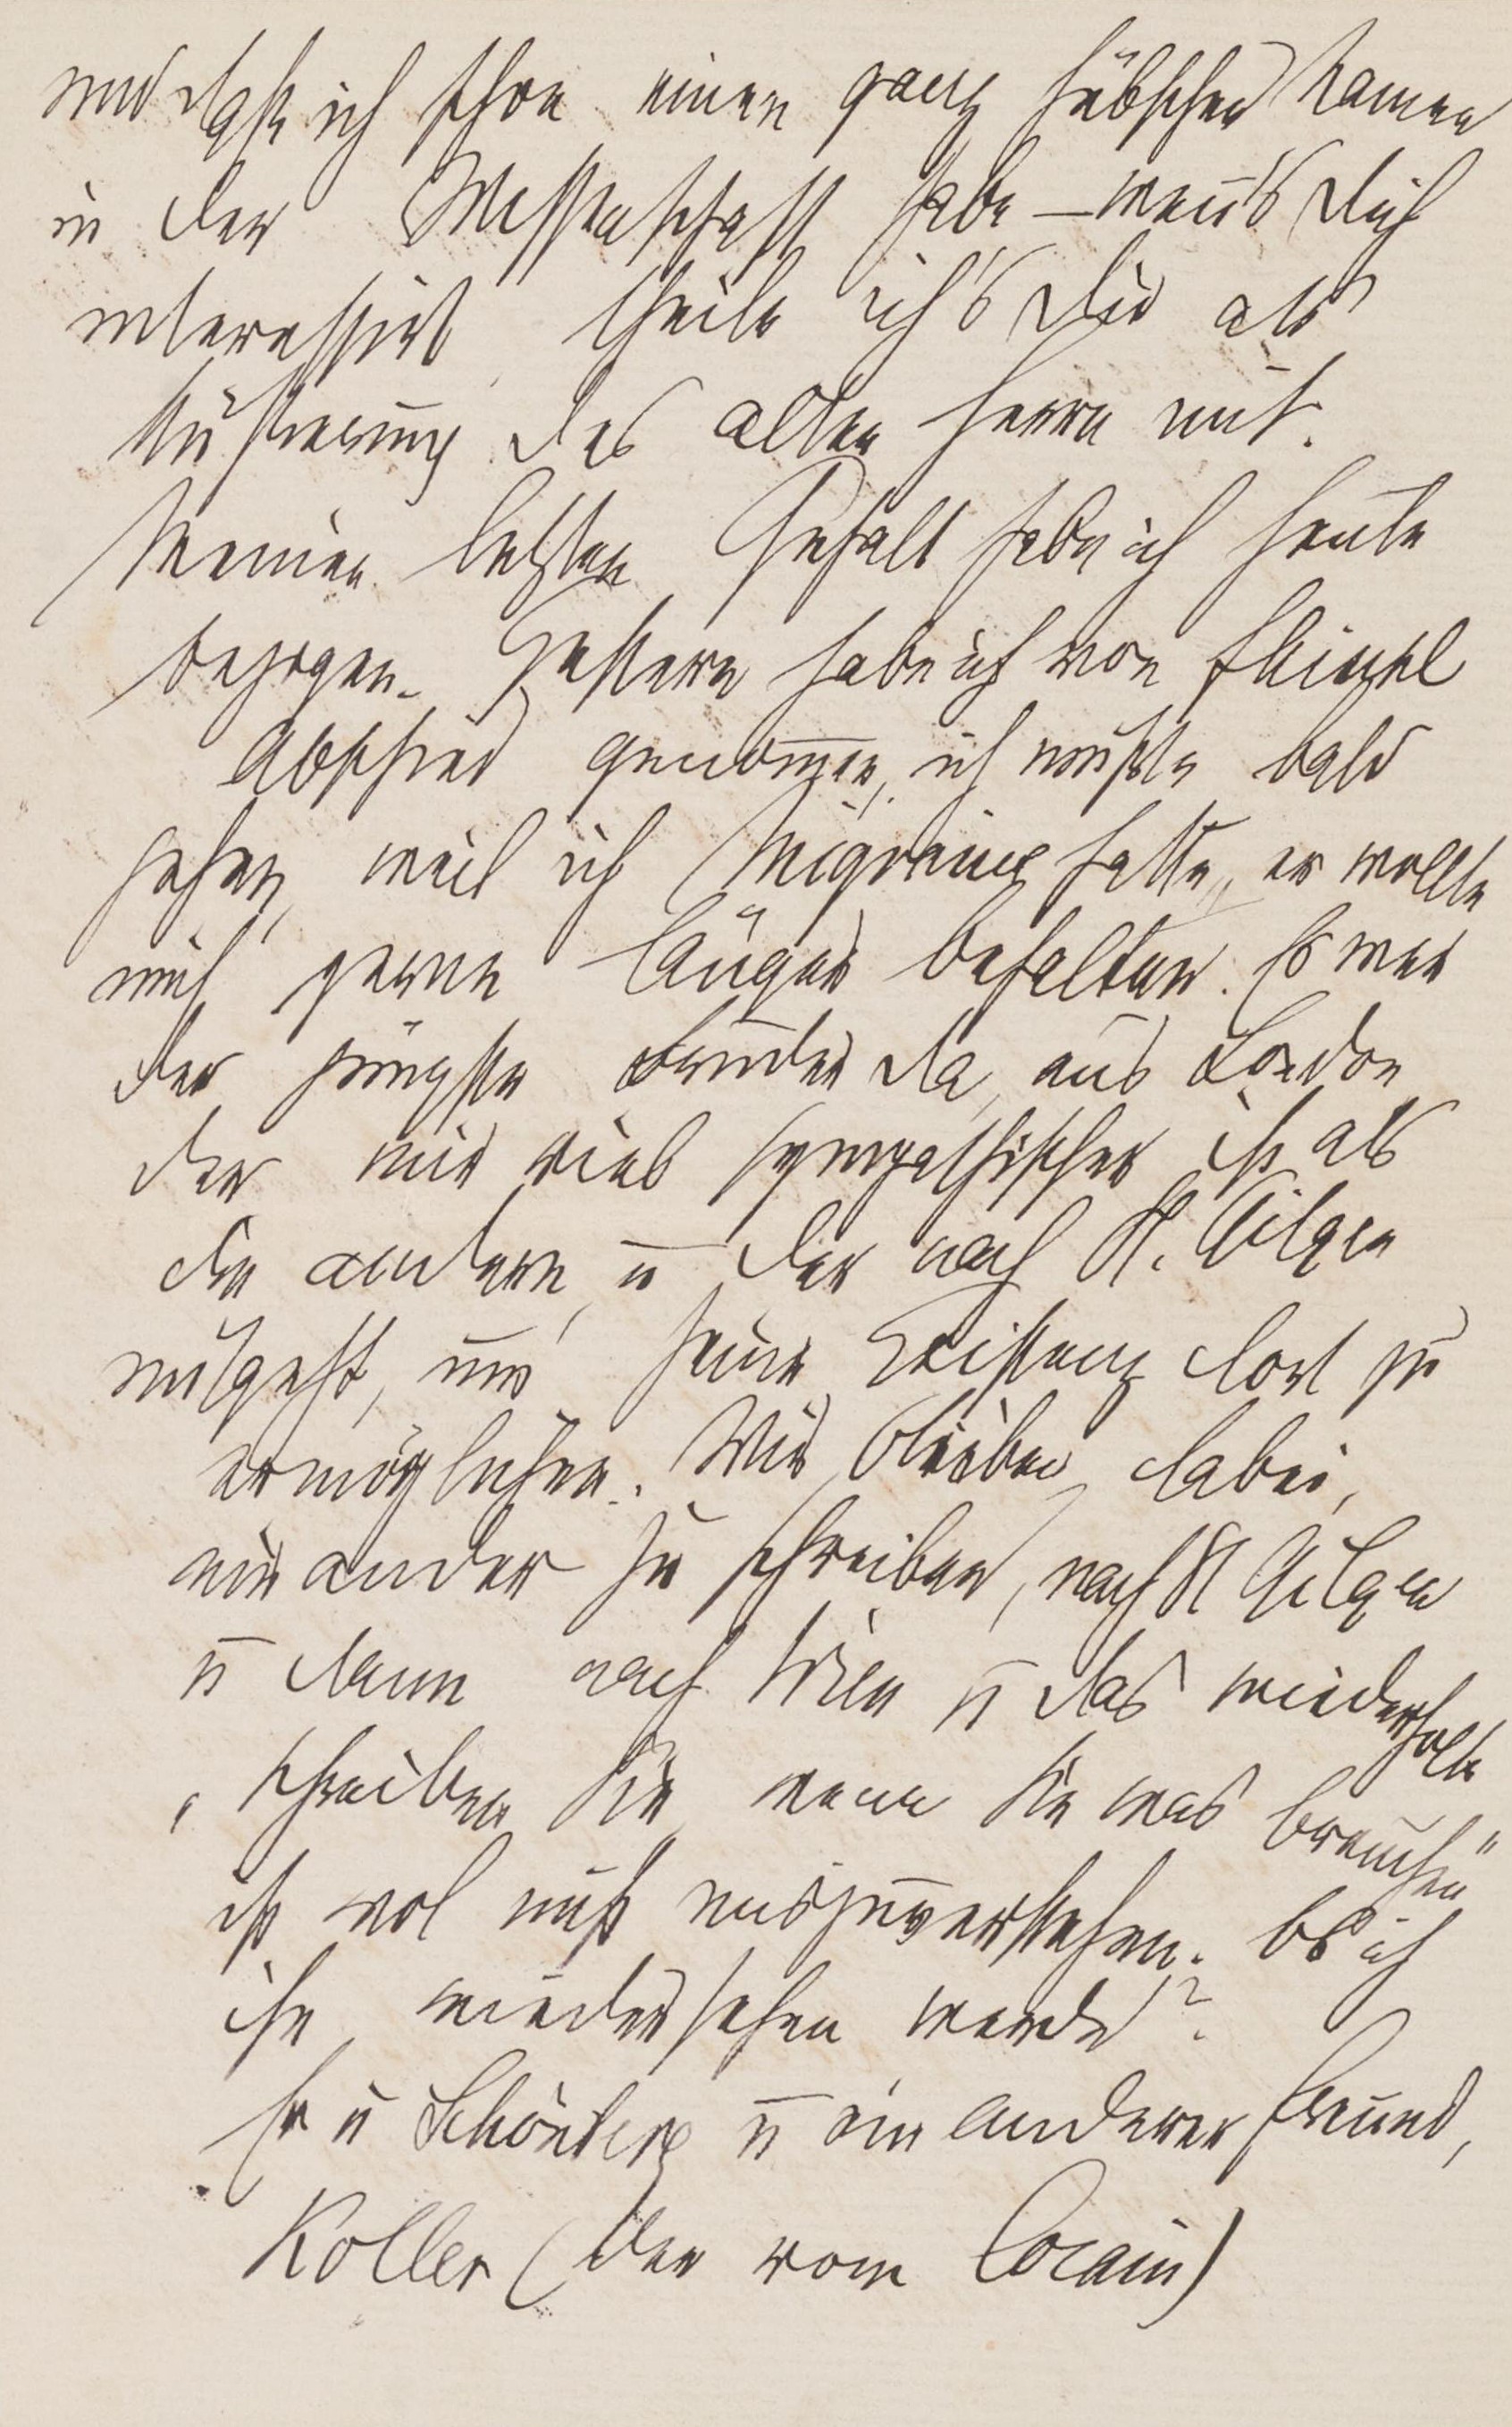 und daß ich schon einen ganz hübschen Namen
in der Wissenschaft habe – wen̄'s Dich
interessirt, theile ich's Dir als
Äußerung des alten Herrn mit.
Meinen letzten Gehalt habe ich heute
bezogen. Gestern habe ich von Fleischl
Abschied genom̄en, ich mußte bald
gehen, weil ich Migraine hatte, er wollte
mich gerne länger behalten. Es war
der jüngste Bruder da, aus London,
der mir viel sympathischer ist als
die andern, u der nach St. Gilgen
mitgeht, um seine Existenz dort zu
ermöglichen. Wir bleiben dabei,
einander zu schreiben, nach St Gilgen
u dann nach Wien u das wiederholte
„schreiben Sie, wenn Sie was brauchen"
ist wol nicht miszuverstehen. Ob ich
ihn wiedersehen werde?
Er u Schönberg u ein anderer Freund,
Koller (der vom Cocain)